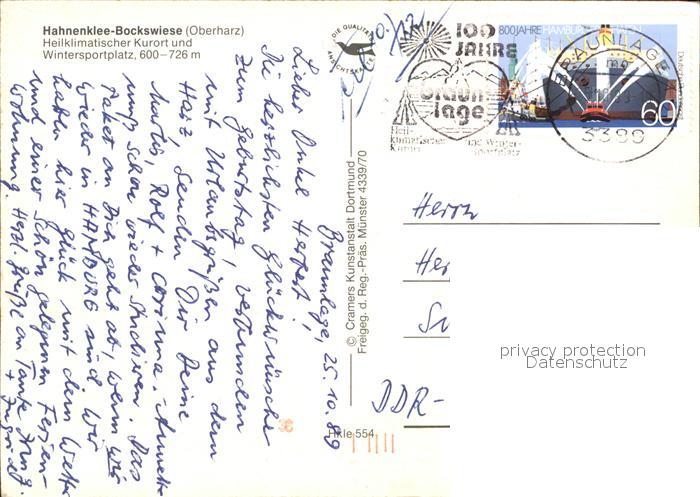 Hahnenklee-Bockswiese (Oberharz)
Heilklimatischer Kurort und
Wintersportplatz, 600–726 m
DIE QUALITÄTS
ANSICHTSKARTE
100
JAHRE
Braun
lage
Heil-
klimatischer
Kurort
und Winter-
sportplatz
800 JAHRE HAMBURGER HAFEN
60
BRAUNLAGE
3389
Braunlage, 25.10.89
Lieber Onkel Herbert!
Die herzlichsten Glückwünsche
zum Geburtstag, verbunden
mit Urlaubsgrüßen aus dem
Harz, senden Dir Deine
Moritz, Rolf + Corinna. Annette
muß schon wieder studieren. Das
Paket an Dich geht ab, wenn wir
wieder in HAMBURG sind. Wir
hatten hier Glück mit dem Wetter
und einer schön gelegenen Ferien-
wohnung. Herzl. Grüße an Tante
+ Ingrid.
© Cramers Kunstanstalt Dortmund
Freigeg. d. Reg.-Präs. Münster 4339/70
Hkle 554
Herrn
DDR-
privacy protection
Datenschutz